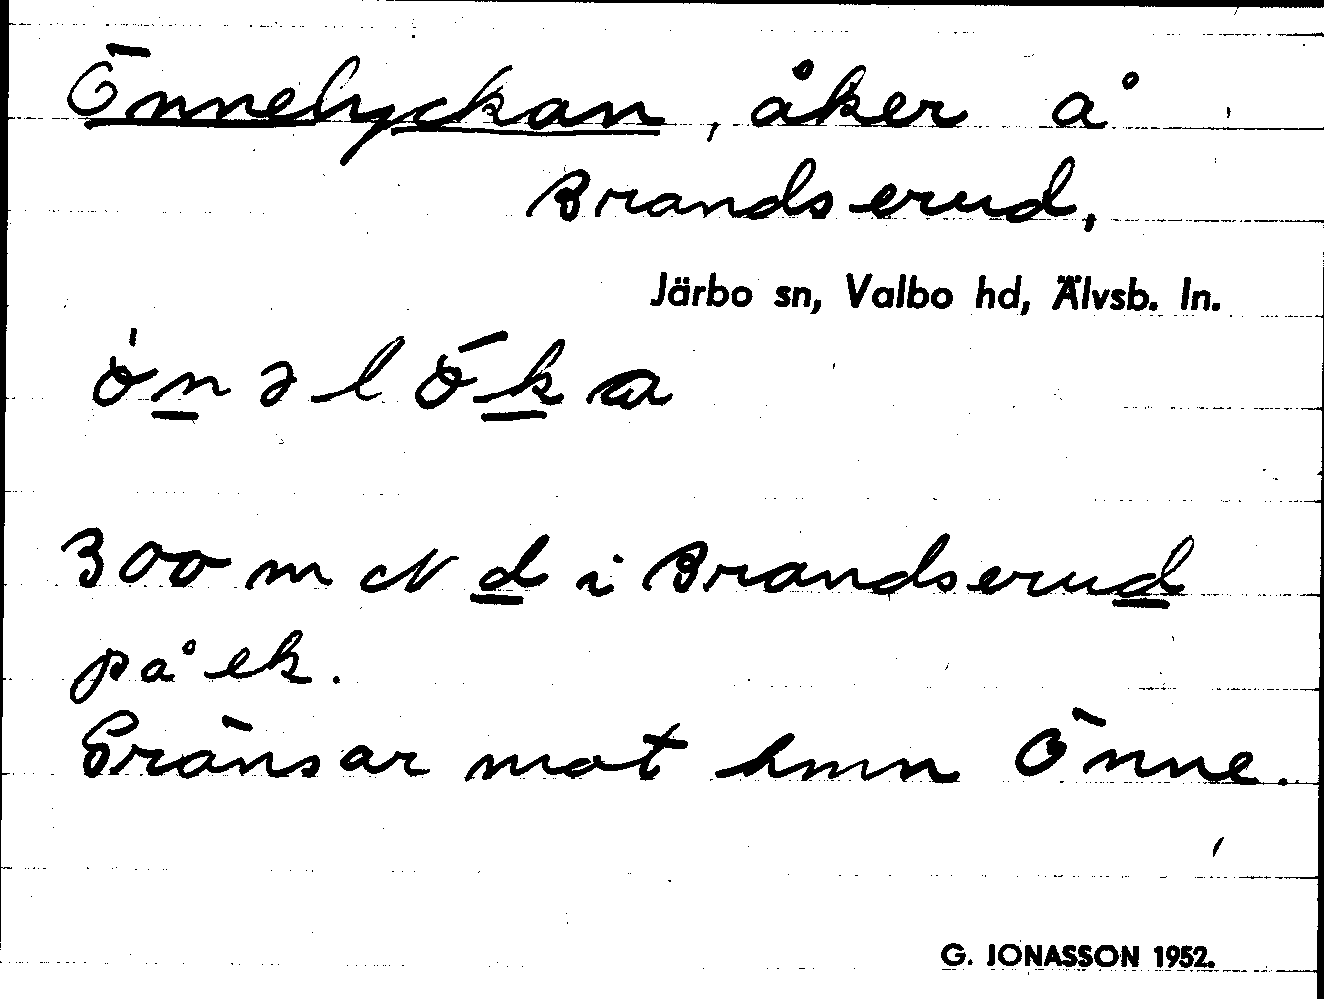 Önnelyckan, åker å
Brandserud,
Järbo sn, Valbo hd, Älvsb. ln.
300 m N d i Brandserud
på ek.
Gränsar mot hmn Önne.
G. JONASSON 1952.